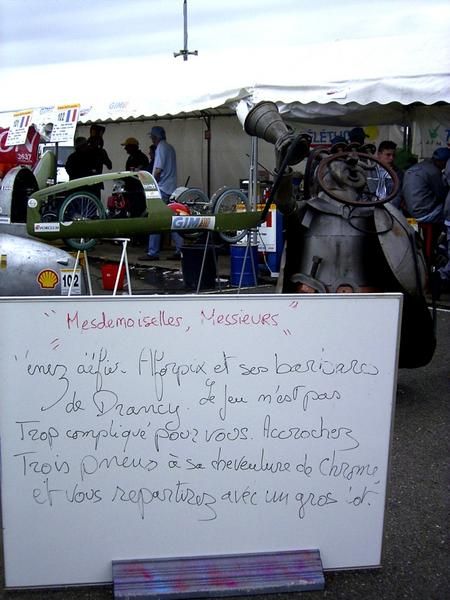 GIM
102
3637
" Mesdemoiselles, Messieurs "
"enez défier. Alforpix et ses baribarcs
de Drancy. Le jeu n'est pas
Trop compliqué pour vous. Accrochez
Trois pneus à sa chevelure de Chrome
et vous repartirez avec un gros lot.